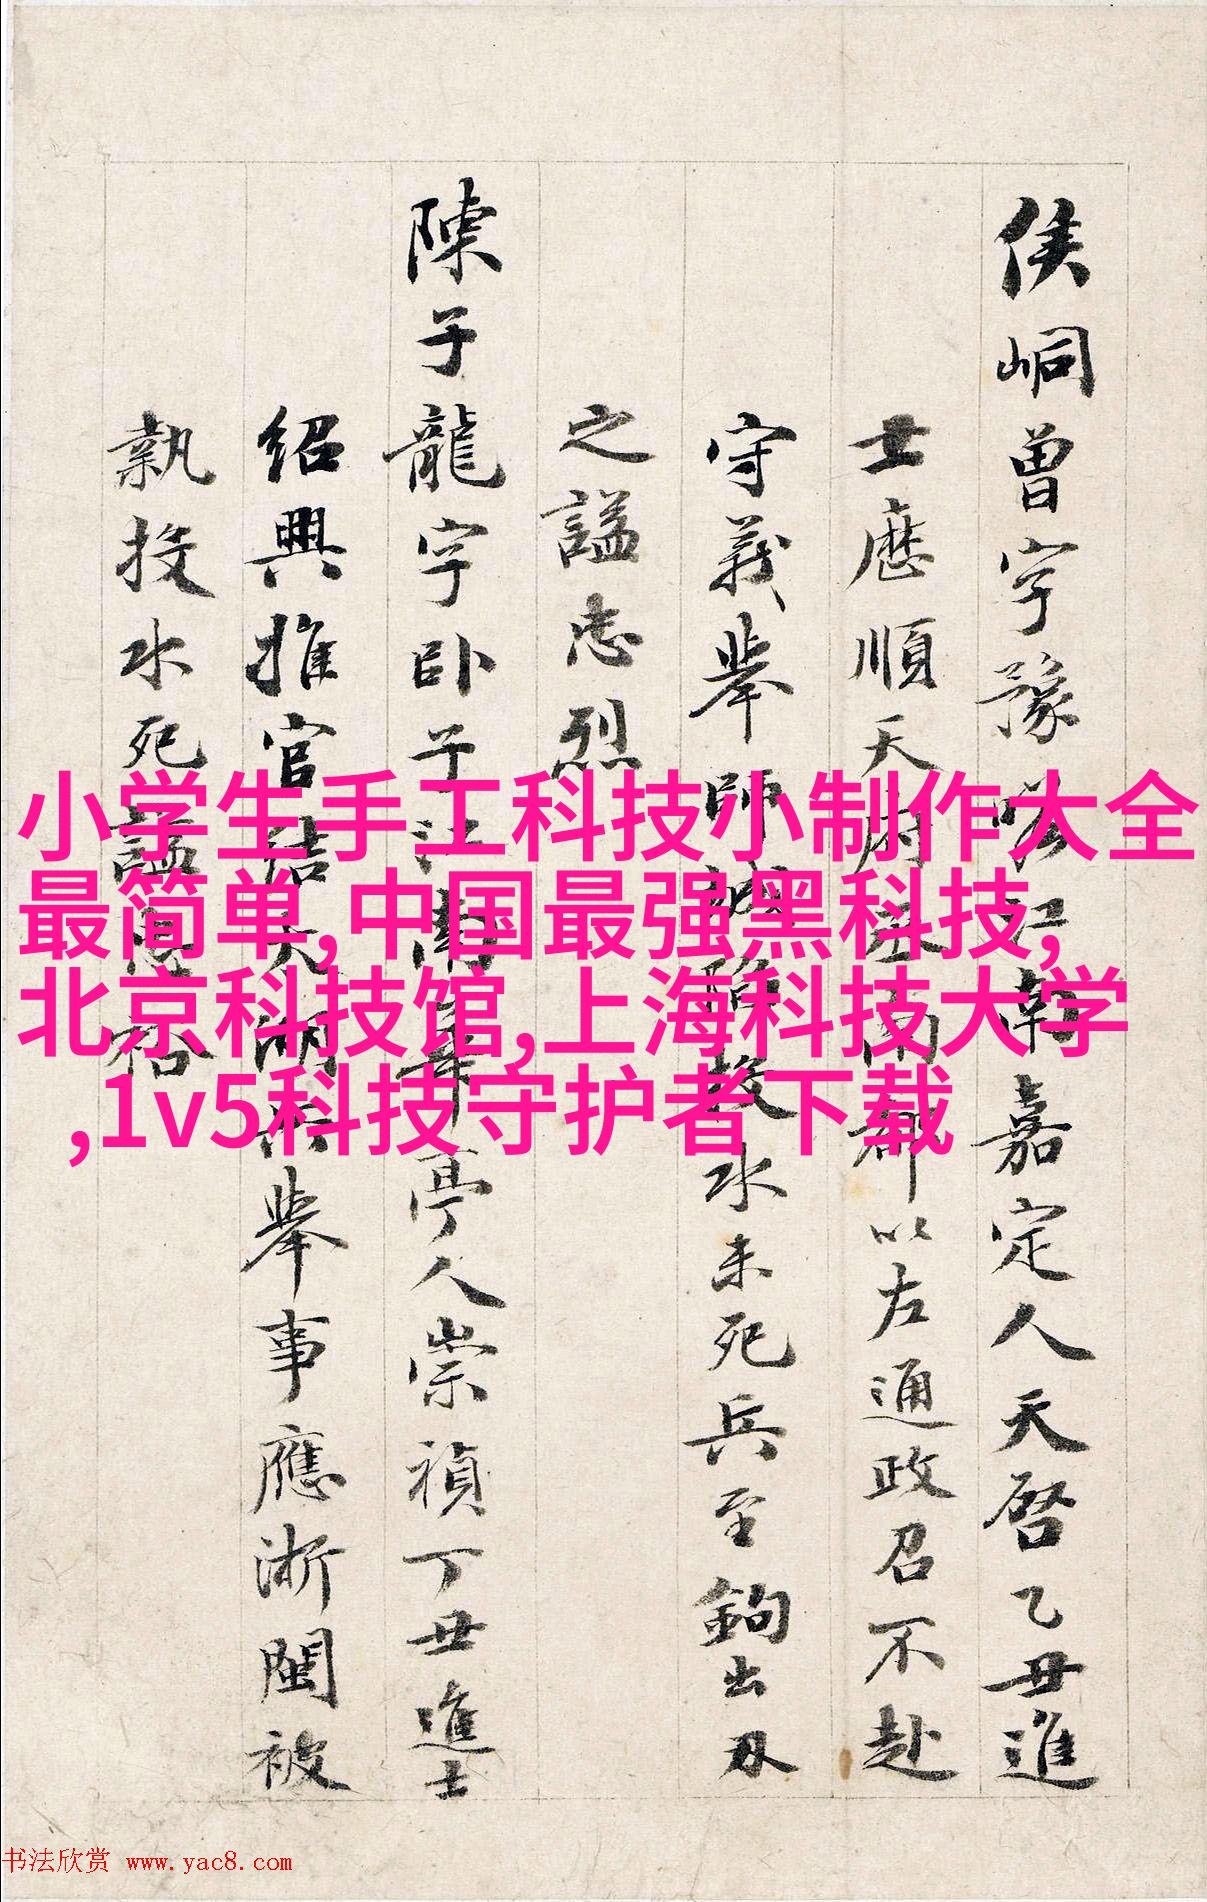 侯峒曾字豫瞻江南嘉定人天啓乙丑進
士歷順天府丞南都以左通政召不赴
守義舉師城陷投水未死兵至鉤出刃
之謚忠烈
陳子龍字卧子江南華亭人崇禎丁丑進士
紹興推官結太湖兵舉事應浙閩被
執投水死謚忠裕
小学生手工科技小制作大全
最简单,中国最强黑科技,
北京科技馆,上海科技大学
,1v5科技守护者下载
书法欣赏 www.yac8.com